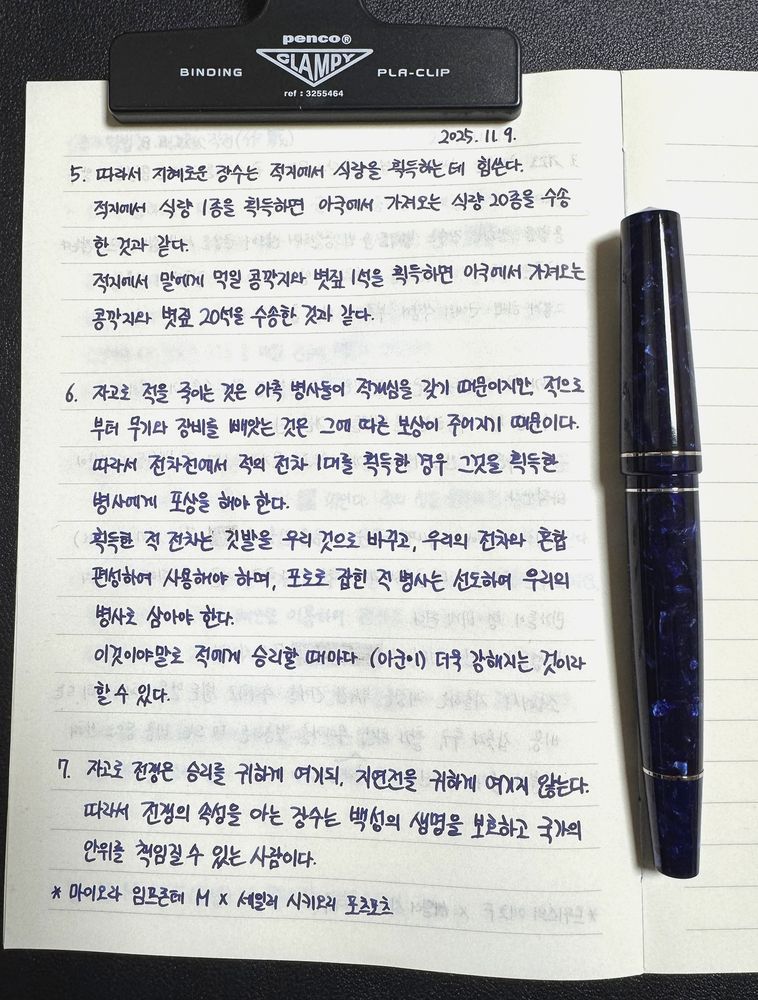 penco®
CLAMPY
BINDING PLA-CLIP
ref : 3255464
2025. 11. 9.
5. 따라서 지혜로운 장수는 적지에서 식량을 획득하는데 힘쓴다.
적지에서 식량 1종을 획득하면 아국에서 가져오는 식량 20종을 수송
한 것과 같다.
적지에서 말에게 먹일 콩깍지와 볏짚 1석을 획득하면 아국에서 가져오는
콩깍지와 볏짚 20석을 수송한 것과 같다.
6. 자고로 적을 죽이는 것은 아측 병사들이 적개심을 갖기 때문이지만, 적으로
부터 무기와 장비를 빼앗는 것은 그에 따른 보상이 주어지기 때문이다.
따라서 전차전에서 적의 전차 1대를 획득한 경우 그것을 획득한
병사에게 포상을 해야 한다.
획득한 적 전차는 깃발을 우리 것으로 바꾸고, 우리의 전차와 혼합
편성하여 사용해야 하며, 포로로 잡힌 적 병사는 선도하여 우리의
병사로 삼아야 한다.
이것이야말로 적에게 승리할 때마다 (아군이) 더욱 강해지는 것이라
할 수 있다.
7. 자고로 전쟁은 승리를 귀하게 여기되, 지연전을 귀하게 여기지 않는다.
따라서 전쟁의 속성을 아는 장수는 백성의 생명을 보호하고 국가의
안위를 책임질 수 있는 사람이다.
* 마이오라 임프론테 M x 세일러 시키오리 포츠포츠